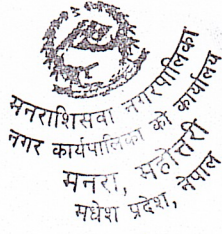 मनराशिसवा नगरपालिका
नगर कार्यपालिका को कार्यालय
मनरा, महोत्तरी
मधेश प्रदेश, नेपाल